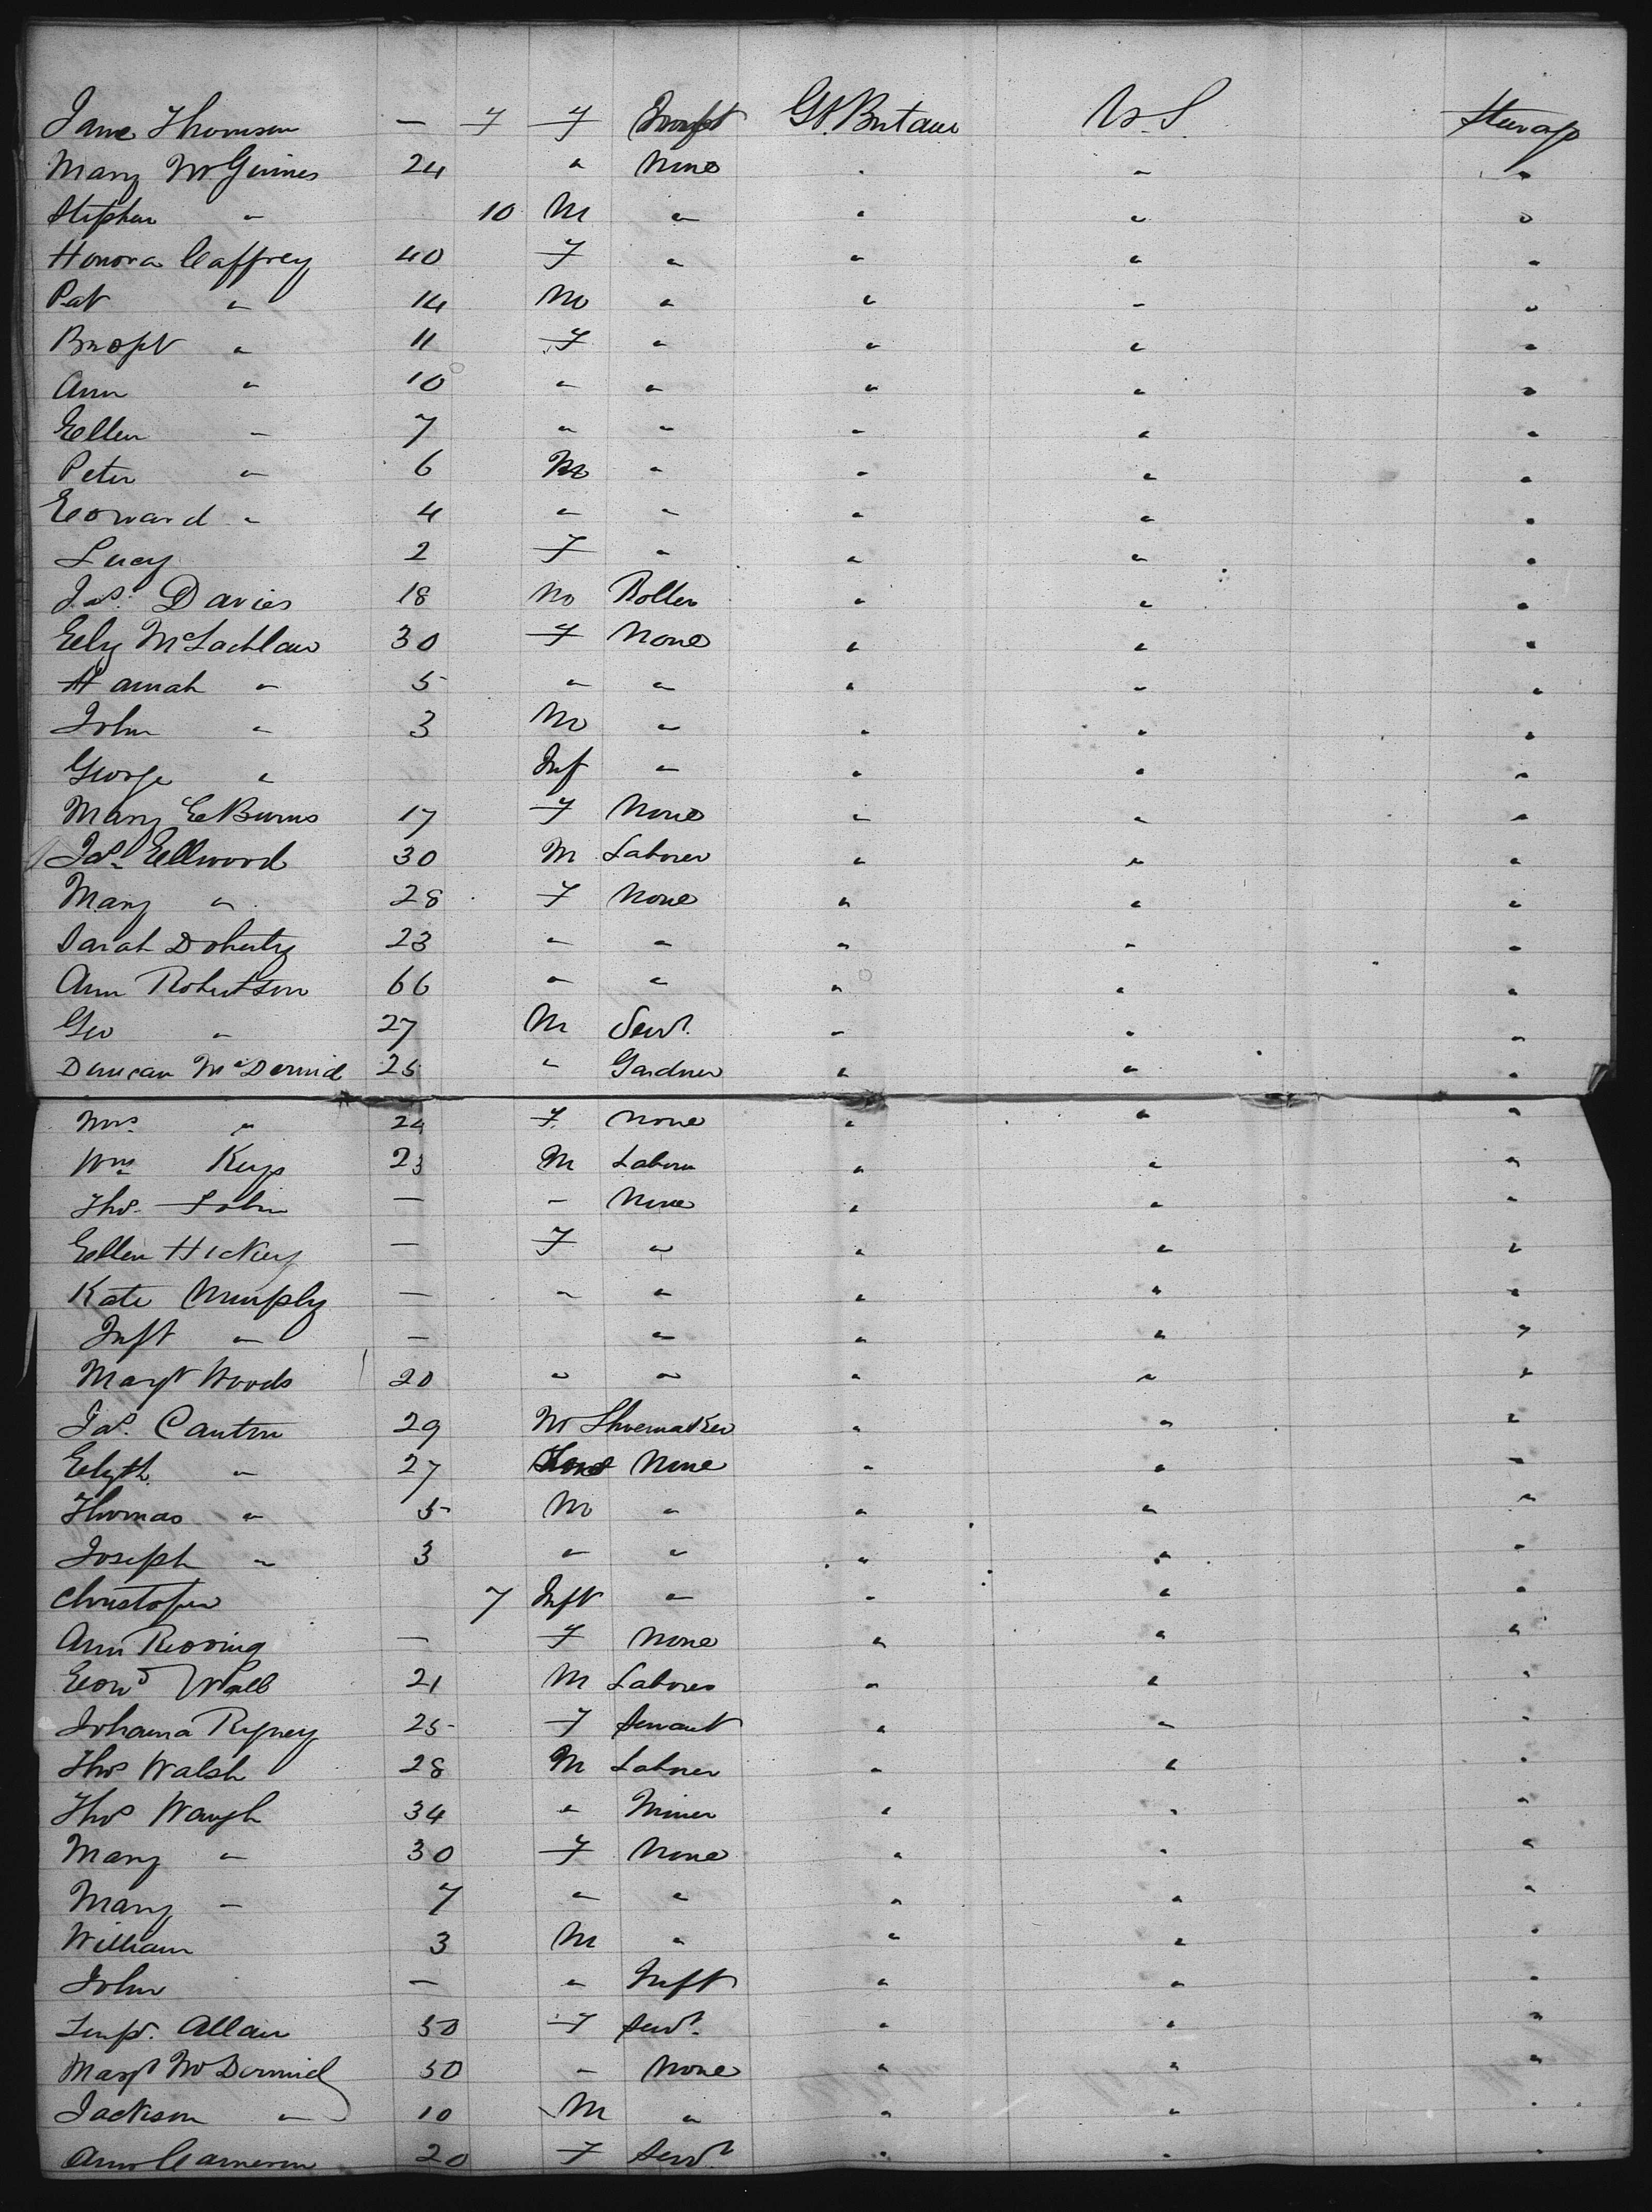 Jane Thomson — 7 F Infft Gt. Britain U.S. Steerage
Mary McGuines 24 " None " " "
Stephen " 10 M " " " "
Honora Caffrey 40 F " " " "
Pat " 14 M " " " "
Bridgt " 11 F " " " "
Ann " 10 " " " " "
Ellen " 7 " " " " "
Peter " 6 M " " " "
Edward " 4 " " " " "
Lucy 2 F " " " "
Jas. Davies 18 M Roller " " "
Eliz McLachlan 30 F None " " "
Hannah " 5 " " " " "
John " 3 M " " " "
George " Inf " " " "
Mary E Burns 17 F None " " "
Jas. Ellwood 30 M Laborer " " "
Mary " 28 F None " " "
Sarah Doherty 23 " " " " "
Ann Robertson 66 " " " " "
Geo " 27 M Servt. " " "
Duncan McDermid 25 " Gardner " " "
Mrs. " 24 F None " " "
Wm Keys 23 M Laborer " " "
Thos. Tobin — - None " " "
Ellen Hickey — F " " " "
Kate Murphy — " " " " "
Inft " — " " " "
Margt Woods 20 " " " " "
Jas. Canton 29 M Shoemaker " " "
Elizth. " 27 None " " "
Thomas " 5 M " " " "
Joseph " 3 " " " " "
Christopher 7 Inft " " " "
Ann Redding — F None " " "
Edwd Wall 21 M Laborer " " "
Johanna Rigney 25 F Servant " " "
Thos Walsh 28 M Laborer " " "
Thos Waugh 34 " Miner " " "
Mary " 30 F None " " "
Mary " 7 " " " " "
William 3 M " " " "
John — " Inft " " "
Allan 50 F Servt. " " "
Margt McDermid 50 - None " " "
Jackson " 10 M " " " "
Ann Cameron 20 F Servt " " "